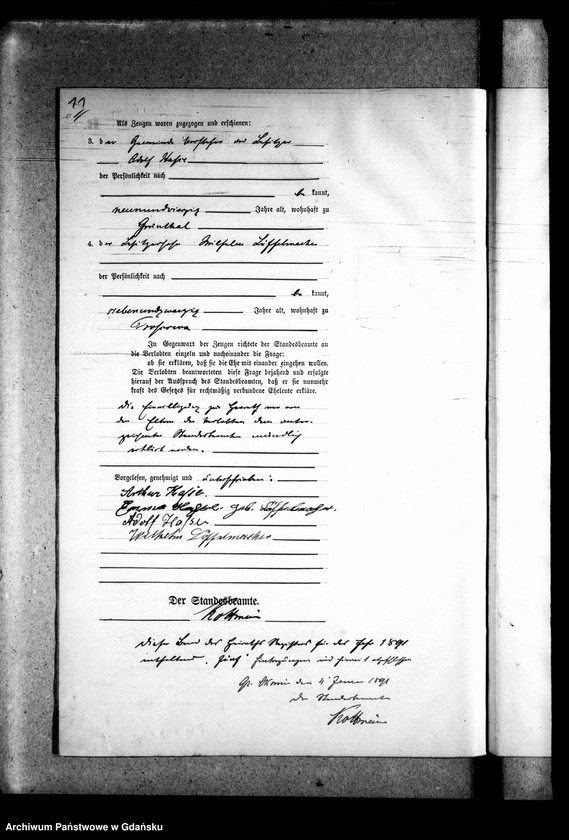 11
Als Zeugen waren zugezogen und erschienen:
3. der Gemeinde Vorsteher und Besitzer
Adolf Hasse
der Persönlichkeit nach
be kannt,
neunundvierzig Jahre alt, wohnhaft zu
Grünthal
4. der Besitzersohn Wilhelm Löffelmacher
der Persönlichkeit nach
be kannt,
siebenundzwanzig Jahre alt, wohnhaft zu
In Gegenwart der Zeugen richtete der Standesbeamte an
die Verlobten einzeln und nacheinander die Frage:
ob sie erklären, daß sie die Ehe mit einander eingehen wollen.
Die Verlobten beantworteten diese Frage bejahend und erfolgte
hierauf der Ausspruch des Standesbeamten, daß er sie nunmehr
kraft des Gesetzes für rechtmäßig verbundene Eheleute erkläre.
Die Einwilligung zur Heirath von
den Eltern der Verlobten dem unter-
zeichneten Standesbeamten mündlich
erklärt worden.
Vorgelesen, genehmigt und unterschrieben:
Arthur Hasse.
Emma Hasse. geb. Löffelmacher.
Adolf Hasse
Wilhelm Löffelmacher
Der Standesbeamte.
Dieser Band des Heiraths Registers für das Jahr 1891
enthaltend fünf Eintragungen wird hiermit abgeschlossen
den Januar
Der Standesbeamte
Archiwum Państwowe w Gdańsku